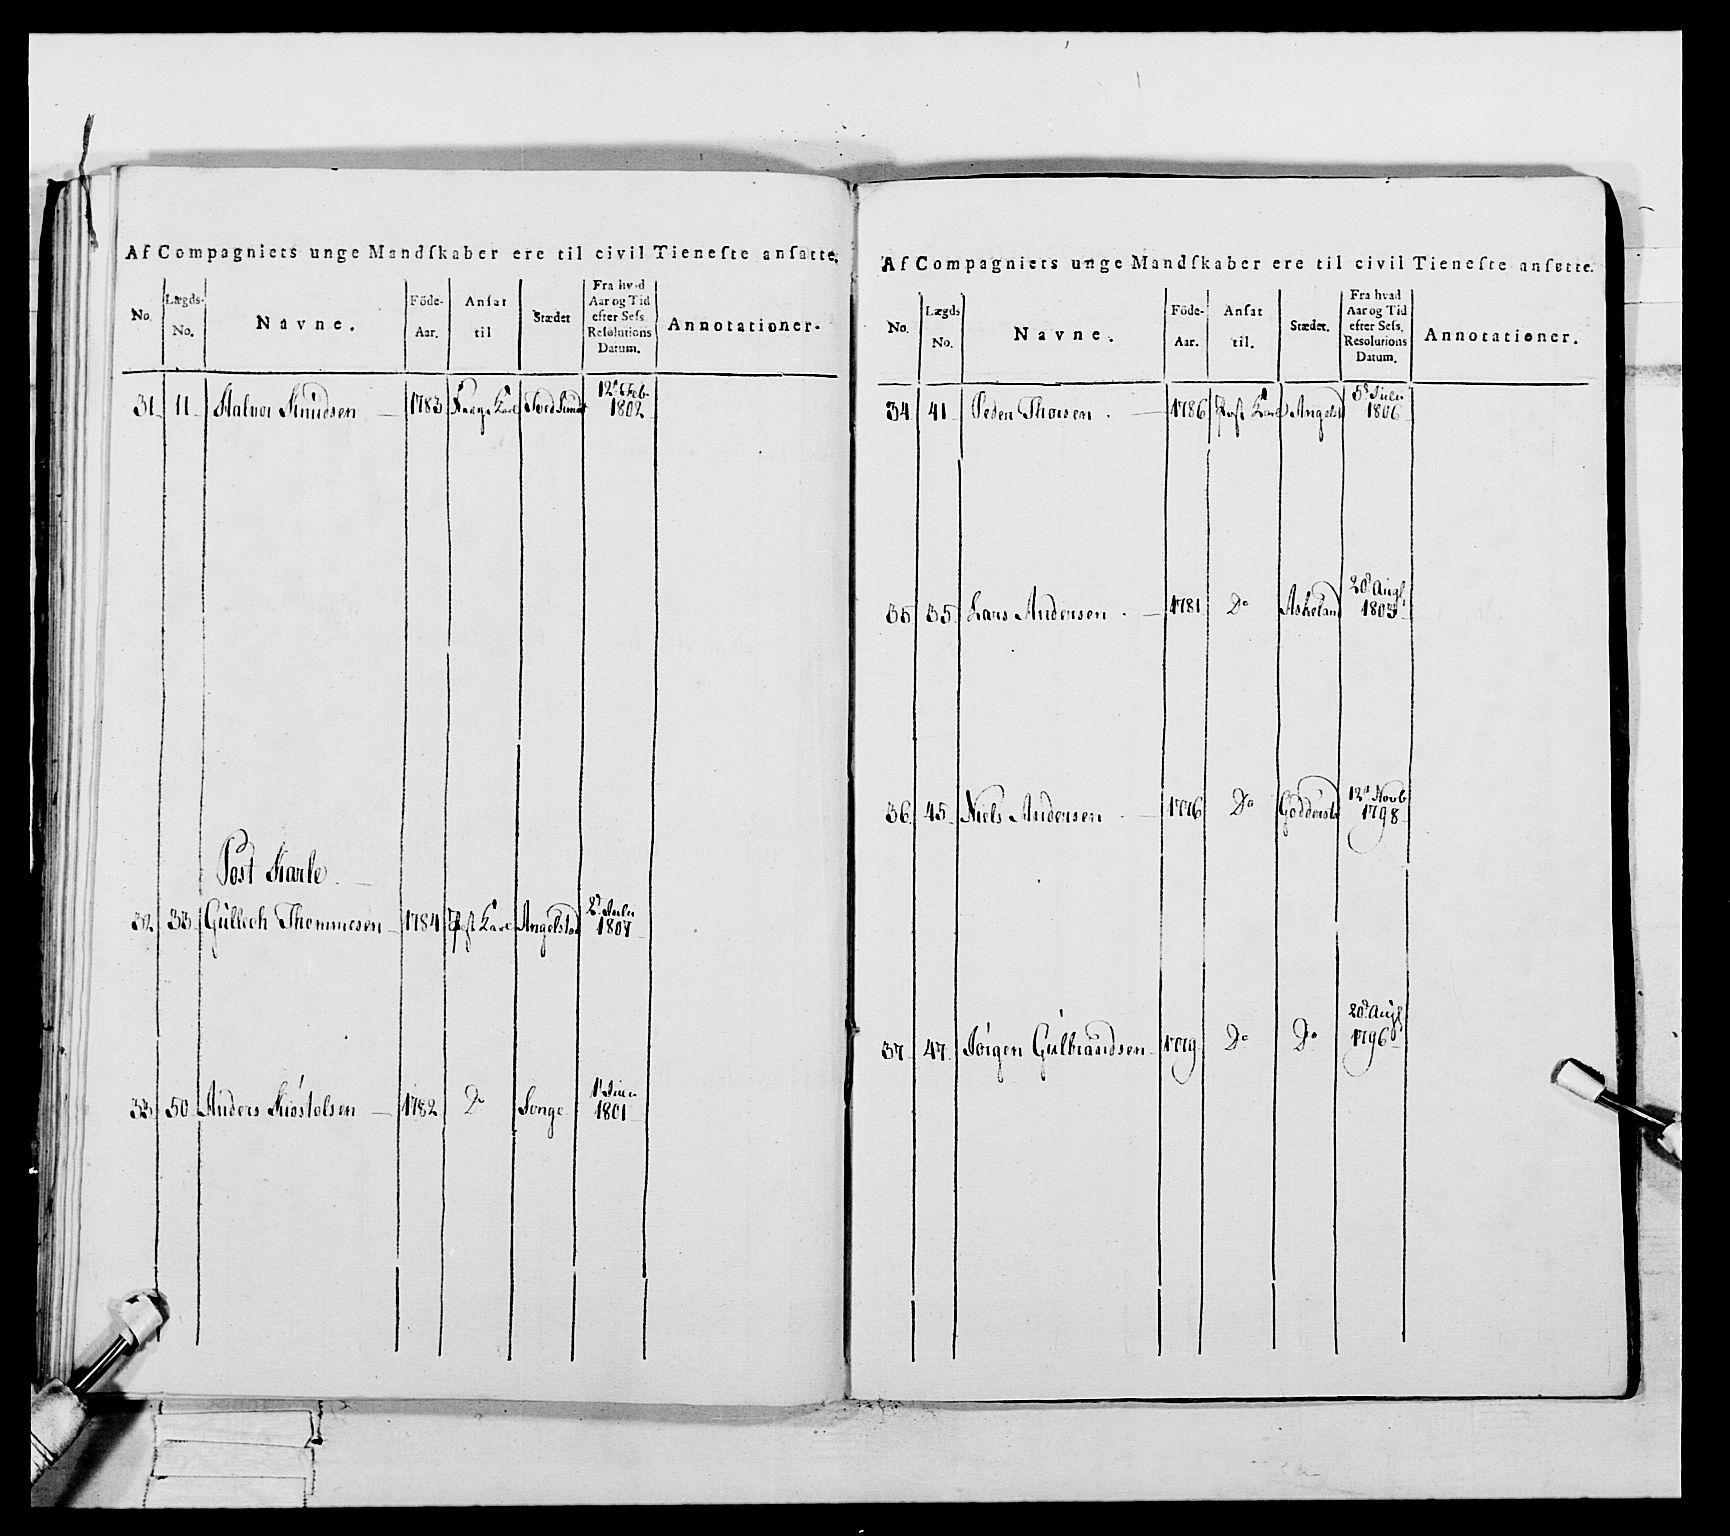 Af Compagniets unge Mandſkaber ere til civil Tieneſte anſatte.
No. Lægds-No. Navne. Föde-Aar. Anſat til Stædet Fra hvad Aar og Tid efter Seſs. Reſolutions Datum. Annotationer.
31 11 Halvor Knudsen 1783 Karl 12t Feb. 1802
Post Karle
32 33 Gullich Thommesen 1784 Post Karl Angelstad 2d Julii 1807
33 50 Anders Kiøstelsen 1782 Do Songe 1t Juli 1801
Af Compagniets unge Mandſkaber ere til civil Tieneſte anſatte.
No. Lægds No. Navne. Föde-Aar. Anſat til. Stædet. Fra hvad Aar og Tid efter Seſs. Resolutions Datum. Annotationer.
34 41 Peder Thorsen 1786 Post Karl Angelst 5d Julii 1806
35 35 Lars Andersen 1781 Do Askeland 20d Augt 1803
36 45 Niels Andersen 1776 Do 12t Novb 1798
37 47 Jörgen Gulbrandsen 1779 Do Do 20d Augt 1796